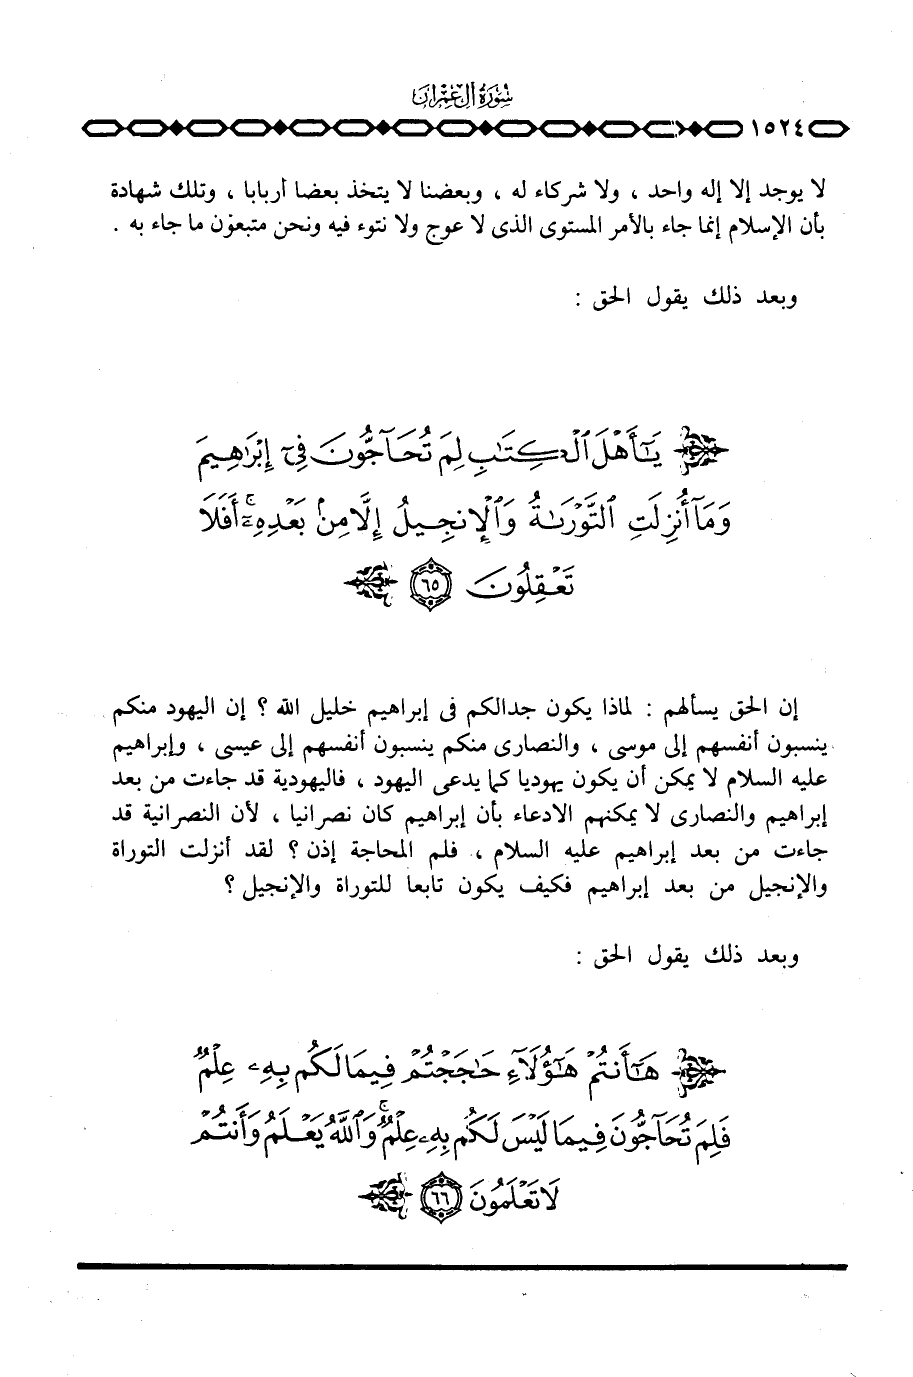 سُورَةُ آلِ عِمْرَان
١٥٢٤
لا يوجد إلا إله واحد ، ولا شركاء له ، وبعضنا لا يتخذ بعضا أربابا ، وتلك شهادة
بأن الإسلام إنما جاء بالأمر المستوى الذى لا عوج ولا نتوء فيه ونحن متبعون ما جاء به .
وبعد ذلك يقول الحق :
يَٰٓأَهْلَ ٱلْكِتَٰبِ لِمَ تُحَآجُّونَ فِىٓ إِبْرَٰهِيمَ
وَمَآ أُنزِلَتِ ٱلتَّوْرَىٰةُ وَٱلْإِنجِيلُ إِلَّا مِنۢ بَعْدِهِۦٓ ۚ أَفَلَا
تَعْقِلُونَ ٦٥
إن الحق يسألهم : لماذا يكون جدالكم فى إبراهيم خليل الله ؟ إن اليهود منكم
ينسبون أنفسهم إلى موسى ، والنصارى منكم ينسبون أنفسهم إلى عيسى ، وإبراهيم
عليه السلام لا يمكن أن يكون يهوديا كما يدعى اليهود ، فاليهودية قد جاءت من بعد
إبراهيم والنصارى لا يمكنهم الادعاء بأن إبراهيم كان نصرانيا ، لأن النصرانية قد
جاءت من بعد إبراهيم عليه السلام ، فلم المحاجة إذن ؟ لقد أنزلت التوراة
والإنجيل من بعد إبراهيم فكيف يكون تابعا للتوراة والإنجيل ؟
وبعد ذلك يقول الحق :
هَٰٓأَنتُمْ هَٰٓؤُلَآءِ حَٰجَجْتُمْ فِيمَا لَكُم بِهِۦ عِلْمٌ
فَلِمَ تُحَآجُّونَ فِيمَا لَيْسَ لَكُم بِهِۦ عِلْمٌ ۚ وَٱللَّهُ يَعْلَمُ وَأَنتُمْ
لَا تَعْلَمُونَ ٦٦